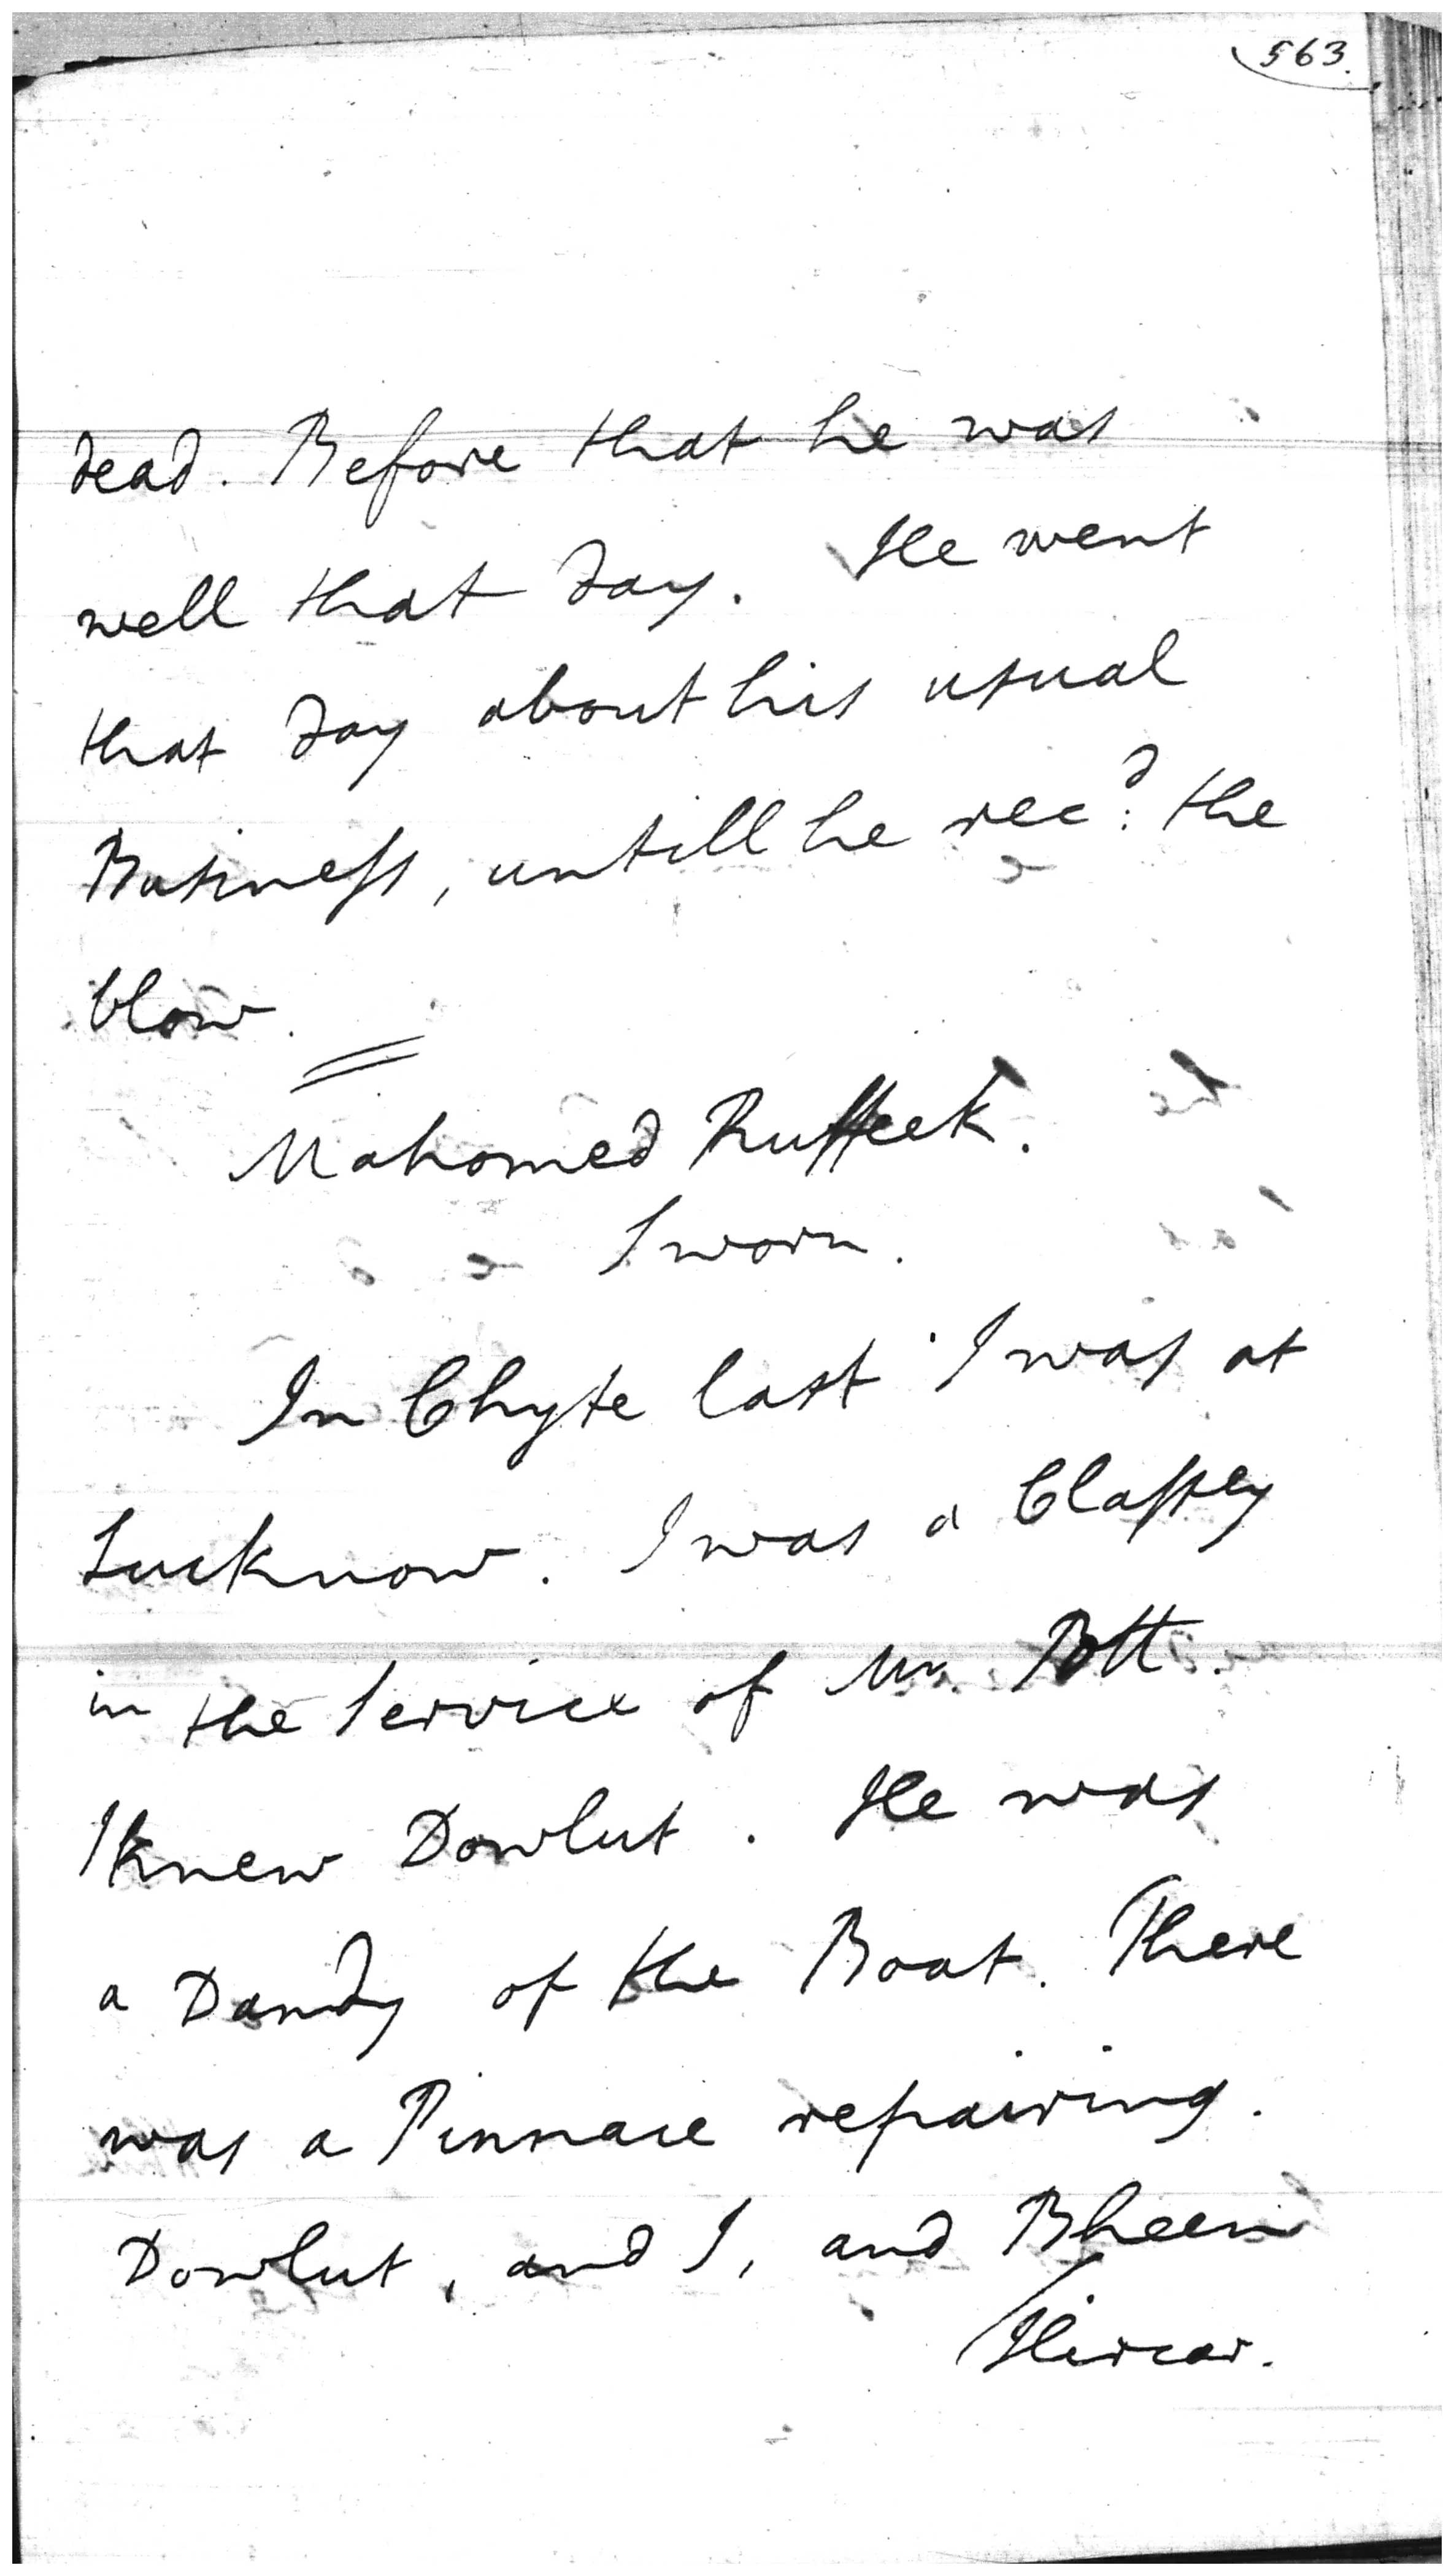 563.
dead. Before that he was
well that day. He went
that day about his usual
Business, untill he rec:d the
blow.
Mahomed Ruffeek.
Sworn.
In Chyte last I was at
Lucknow. I was a Classey
in the Service of Mr. Pott.
I knew Dowlut. He was
a Dandy of the Boat. There
was a Pinnace repairing.
Dowlut, and I, and Bheem
Hircar.